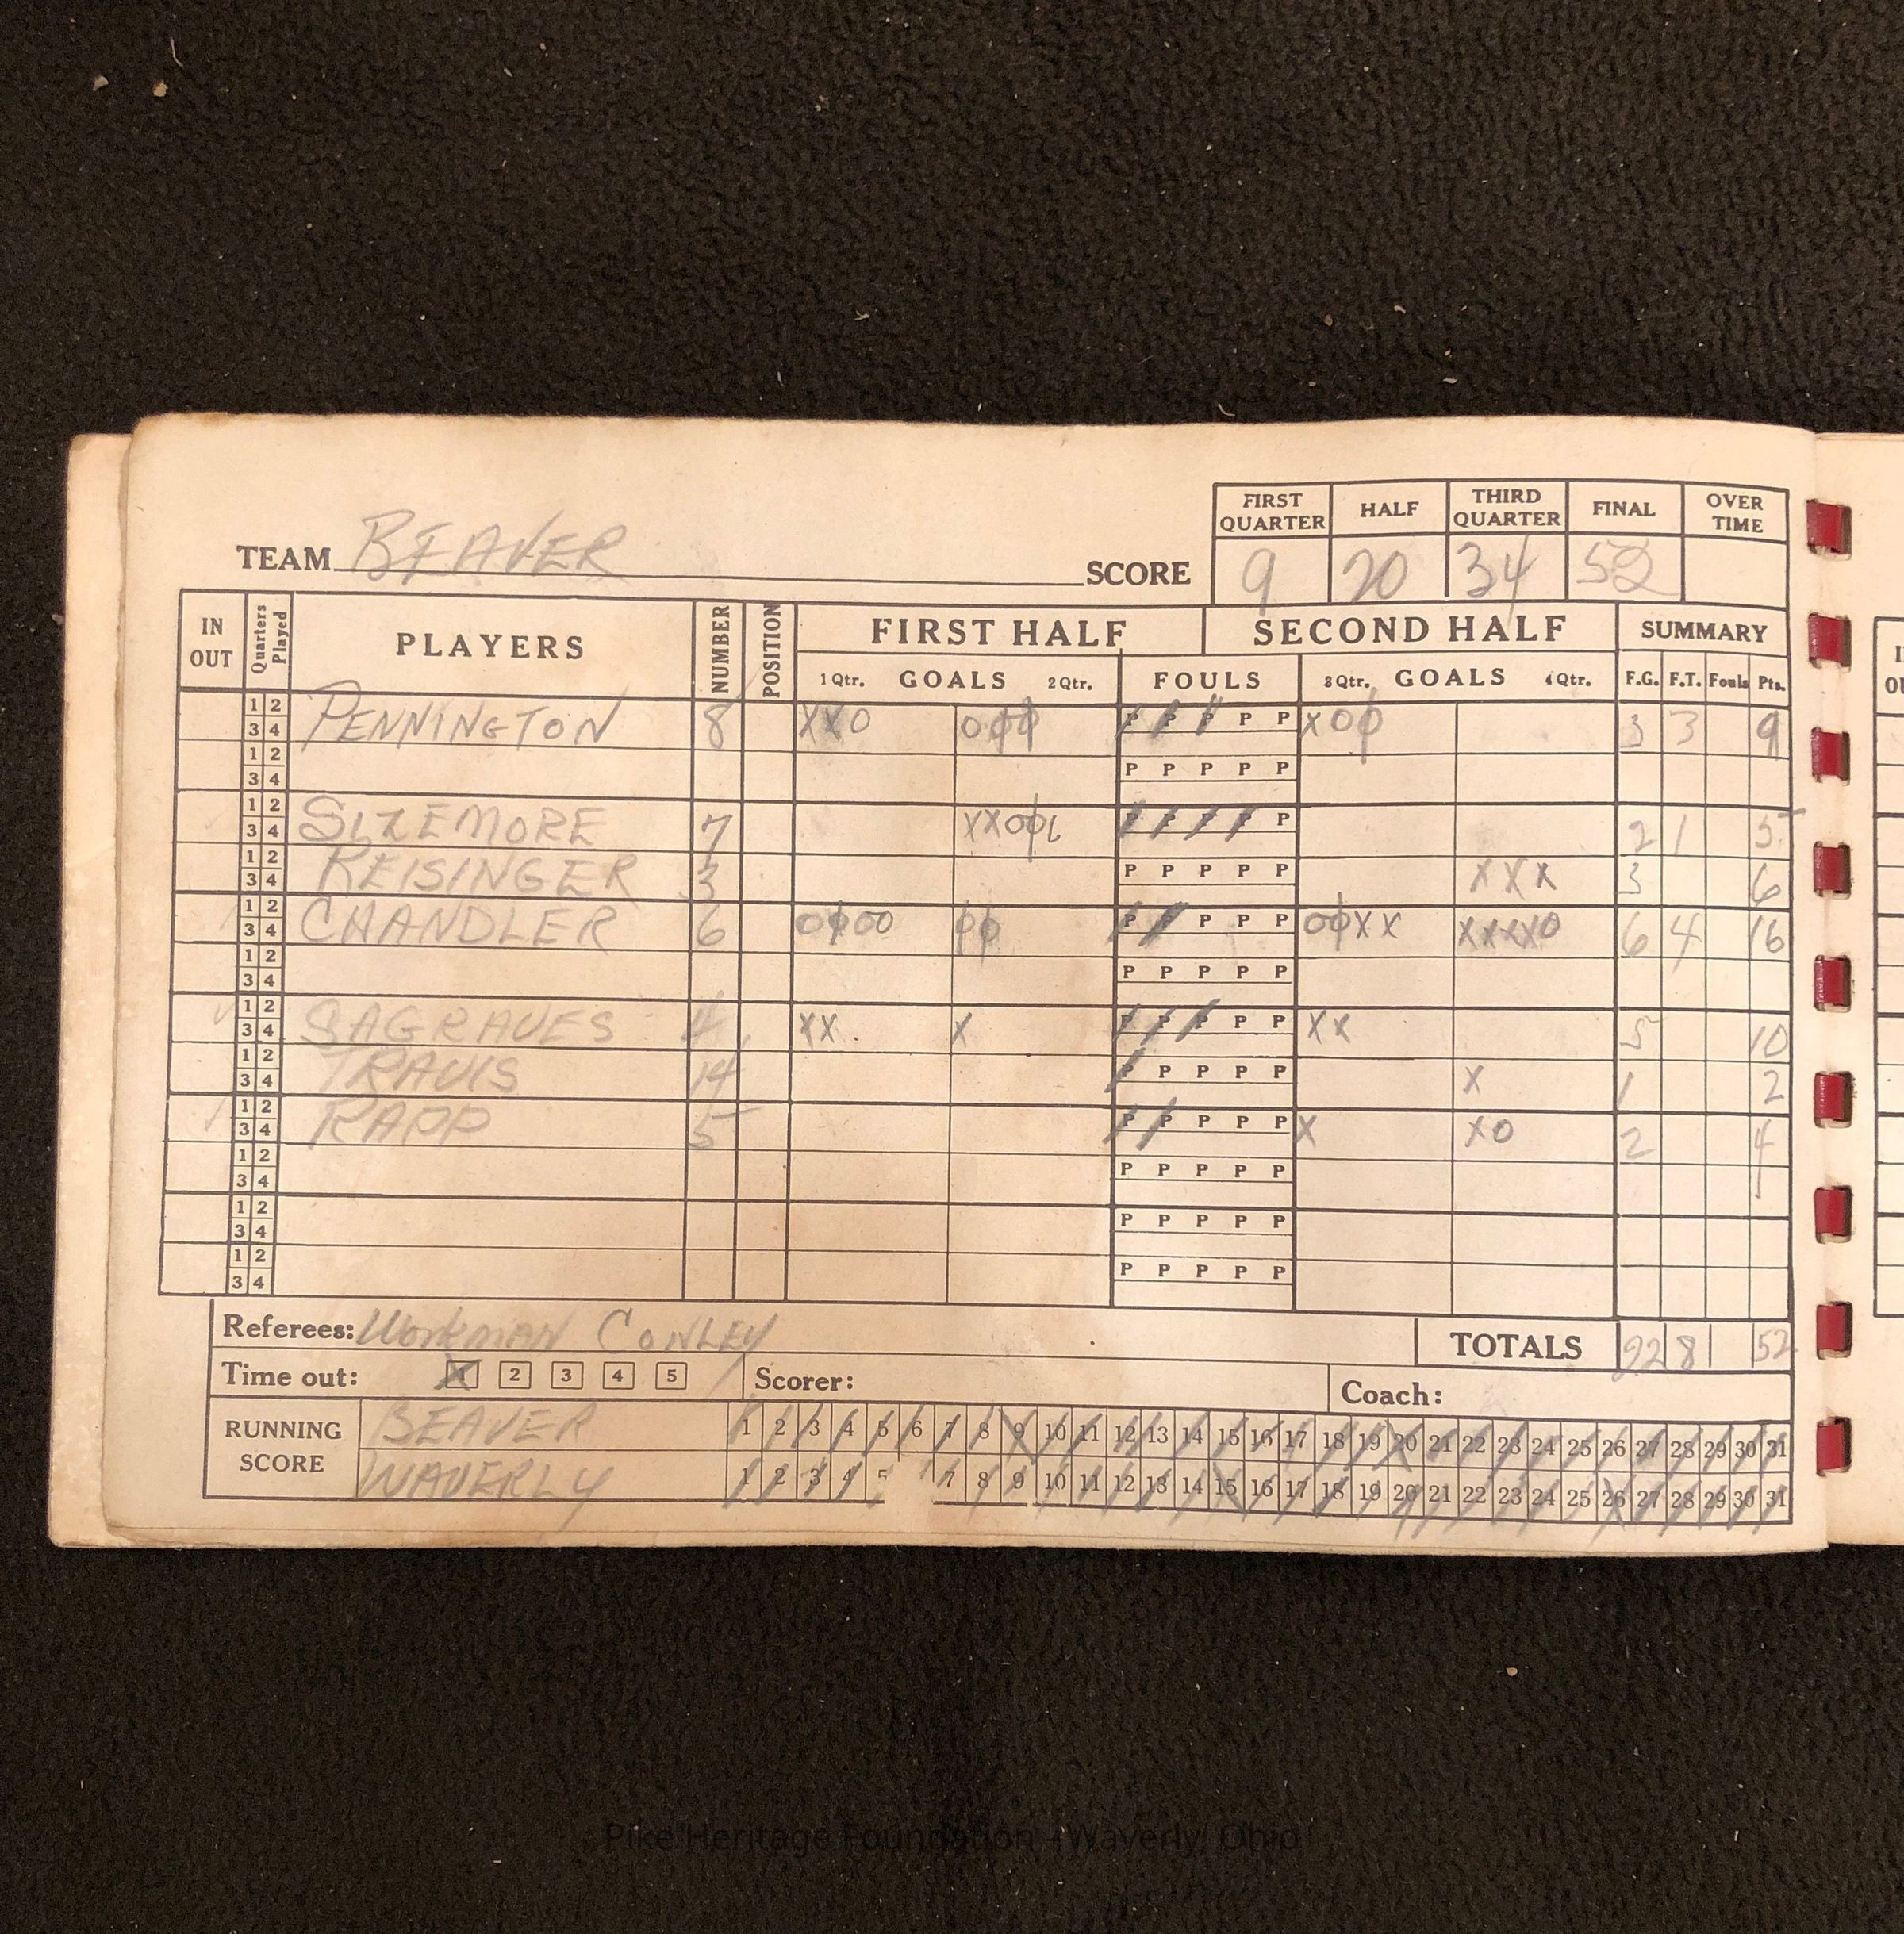 FIRST QUARTER HALF THIRD QUARTER FINAL OVER TIME
TEAM BEAVER SCORE 9 20 34 52
IN OUT Quarters Played PLAYERS NUMBER POSITION FIRST HALF SECOND HALF SUMMARY
1 Qtr. GOALS 2 Qtr. FOULS 3 Qtr. GOALS 4 Qtr. F.G. F.T. Fouls Pts.
1 2 3 4 PENNINGTON 8 XXO OϕϕP P P P P XOϕ 3 3 9
1 2 3 4 P P P P P
1 2 3 4 SIZEMORE 7 XXOϕL P P P P P 2 1 5
1 2 3 4 REISINGER 3 P P P P P XXX 3 6
1 2 3 4 CHANDLER 6 OϕOO ϕϕ P P P P P OϕXX XXXXO 6 4 16
1 2 3 4 P P P P P
1 2 3 4 SAGRAVES 4 XX X P P P P P XX 5 10
1 2 3 4 TRAVIS 14 P P P P P X 1 2
1 2 3 4 RAPP 5 P P P P P X XO 2 4
1 2 3 4 P P P P P
1 2 3 4 P P P P P
1 2 3 4 P P P P P
Referees: Workman CONLEY TOTALS 22 8 52
Time out: 1 2 3 4 5 Scorer: Coach:
RUNNING SCORE
BEAVER 1 2 3 4 5 6 7 8 9 10 11 12 13 14 15 16 17 18 19 20 21 22 23 24 25 26 27 28 29 30 31
WAVERLY 1 2 3 4 5 7 8 9 10 11 12 13 14 15 16 17 18 19 20 21 22 23 24 25 26 27 28 29 30 31
Pike Heritage Foundation - Waverly, Ohio